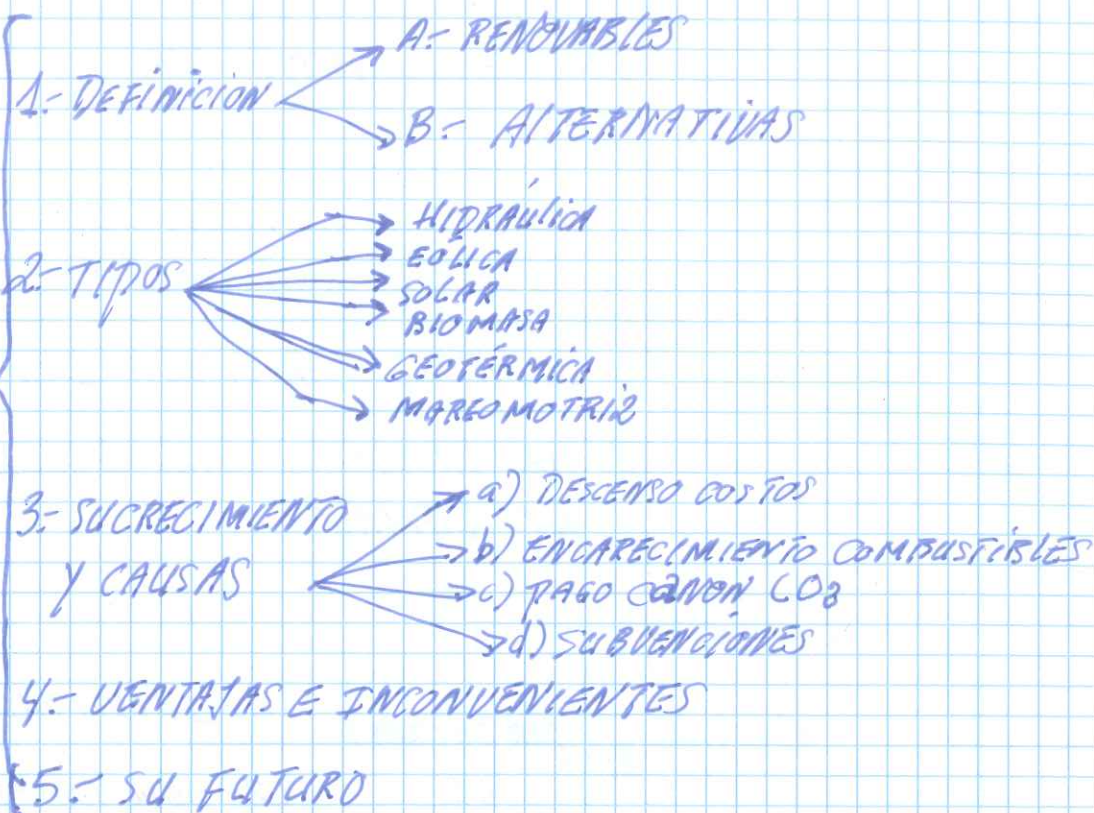 A.- RENOVABLES
1.- DEFINICION
B.- ALTERNATIVAS
HIDRÁULICA
EÓLICA
2.- TIPOS
SOLAR
BIOMASA
GEOTÉRMICA
MAREOMOTRIZ
3.- SU CRECIMIENTO
Y CAUSAS
a) DESCENSO COSTOS
b) ENCARECIMIENTO COMBUSTIBLES
c) PAGO CANON CO2
d) SUBVENCIONES
4.- VENTAJAS E INCONVENIENTES
5.- SU FUTURO